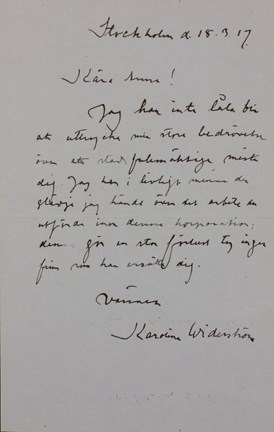 Stockholm d. 18.3.17.
Kära Anna!
Jag kan inte låta bli
att uttrycka min stora bedrövelse
över att stadsfullmäktige mista
dig. Jag har i livligt minne den
glädje jag kände över det arbete du
utförde inom denna korporation;
den gör en stor förlust ty ingen
finns som kan ersätta dig.
Vännen
Karolina Widerström